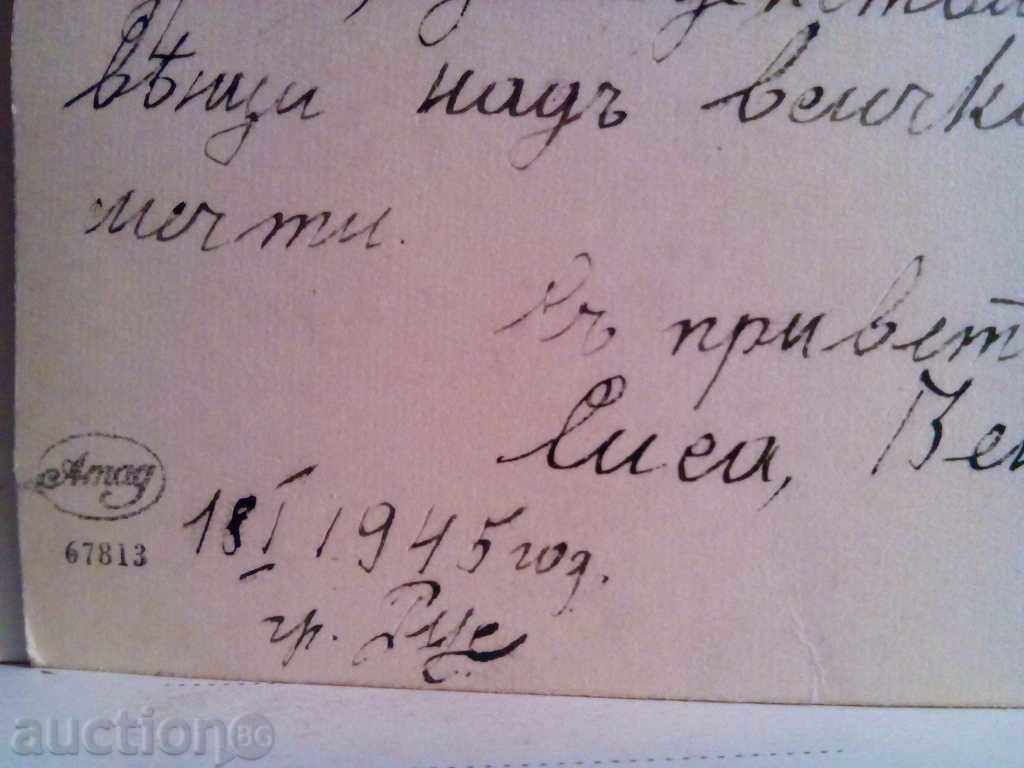 вѣнци надъ всичк
мечти.
Въ привет
Лиса, Вен
Amag
67813
18 I 1945 год.
гр. Русе
auction BG